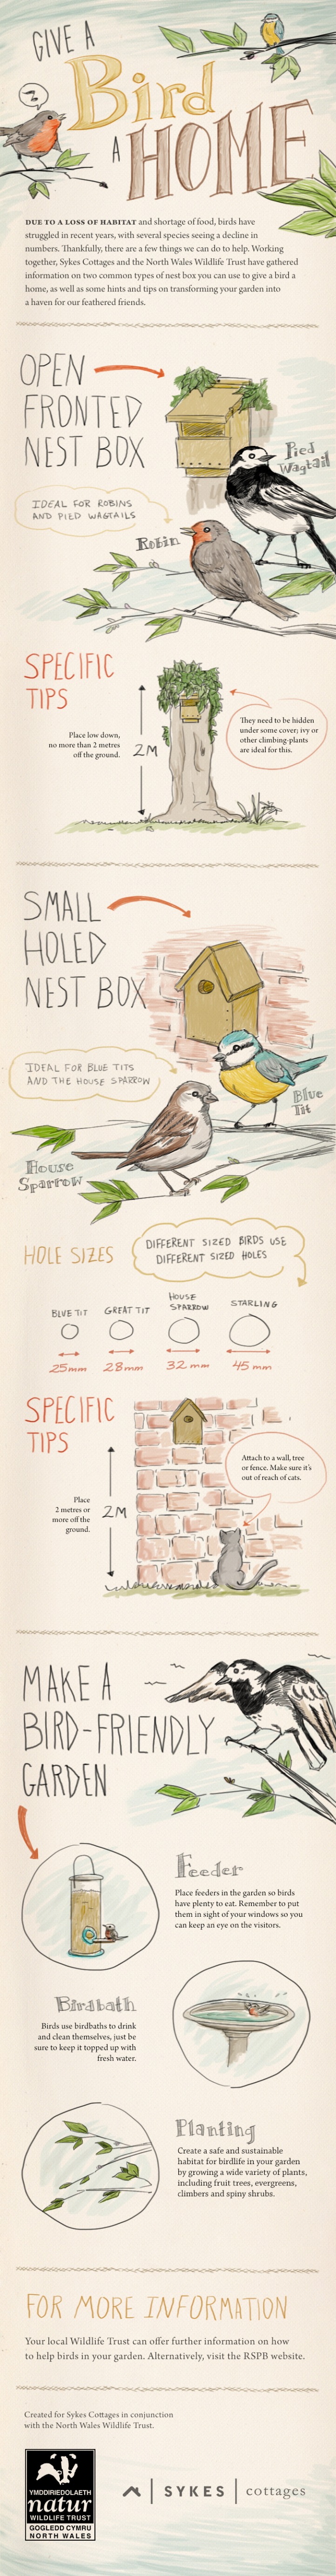 GIVE A
Bird
A HOME
DUE TO A LOSS OF HABITAT and shortage of food, birds have
struggled in recent years, with several species seeing a decline in
numbers. Thankfully, there are a few things we can do to help. Working
together, Sykes Cottages and the North Wales Wildlife Trust have gathered
information on two common types of nest box you can use to give a bird a
home, as well as some hints and tips on transforming your garden into
a haven for our feathered friends.
OPEN
FRONTED
NEST BOX
Pied
Wagtail
IDEAL FOR ROBINS
AND PIED WAGTAILS
Robin
SPECIFIC
TIPS
Place low down,
no more than 2 metres
off the ground.
2M
They need to be hidden
under some cover; ivy or
other climbing-plants
are ideal for this.
SMALL
HOLED
NEST BOX
IDEAL FOR BLUE TITS
AND THE HOUSE SPARROW
Blue
Tit
House
Sparrow
HOLE SIZES
DIFFERENT SIZED BIRDS USE
DIFFERENT SIZED HOLES
BLUE TIT
GREAT TIT
HOUSE
SPARROW
STARLING
25mm
28mm
32 mm
45 mm
SPECIFIC
TIPS
Place
2 metres or
more off the
ground.
2M
Attach to a wall, tree
or fence. Make sure it's
out of reach of cats.
MAKE A
BIRD-FRIENDLY
GARDEN
Feeder
Place feeders in the garden so birds
have plenty to eat. Remember to put
them in sight of your windows so you
can keep an eye on the visitors.
Birdbath
Birds use birdbaths to drink
and clean themselves, just be
sure to keep it topped up with
fresh water.
Planting
Create a safe and sustainable
habitat for birdlife in your garden
by growing a wide variety of plants,
including fruit trees, evergreens,
climbers and spiny shrubs.
FOR MORE INFORMATION
Your local Wildlife Trust can offer further information on how
to help birds in your garden. Alternatively, visit the RSPB website.
Created for Sykes Cottages in conjunction
with the North Wales Wildlife Trust.
YMDDIRIEDOLAETH
natur
WILDLIFE TRUST
GOGLEDD CYMRU
NORTH WALES
SYKES cottages